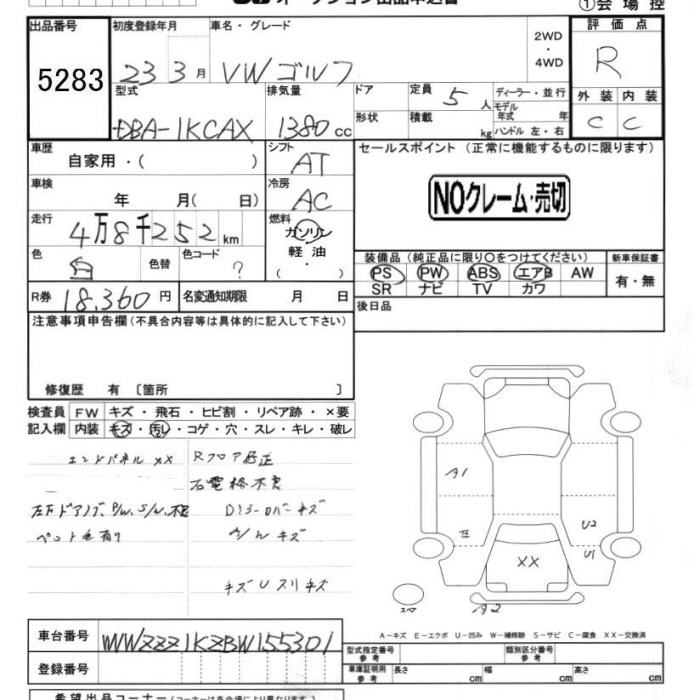 ①会場控
出品番号
5283
初度登録年月
23 3月
車名・グレード
VWゴルフ
2WD
・
4WD
評価点
R
型式
DBA-1KCAX
排気量
1380cc
ドア
定員 5人
形状
積載 kg
ディーラー・並行
モデル年式 年
ハンドル 左・右
外装 内装
C C
車歴
自家用・( )
シフト
AT
セールスポイント (正常に機能するものに限ります)
NOクレーム・売切
車検
年 月( 日)
冷房
AC
走行
4万8千252km
燃料
ガソリン
軽油
( )
色
白
色替
色コード
?
装備品 (純正品に限り○をつけてください)
新車保証書
PS PW ABS エアB AW
SR ナビ TV カワ
有・無
R券 18,360円
名変通知期限 月 日
後日品
注意事項申告欄(不具合内容等は具体的に記入して下さい)
修復歴 有 〔箇所 〕
検査員 FW キズ・飛石・ヒビ割・リペア跡・×要
記入欄 内装 キズ・汚レ・コゲ・穴・スレ・キレ・破レ
エンドパネルXX Rフロア修正
キズUスリキズ
A1
U2
U1
XX
スペア
A2
A-キズ E-エクボ U-凹み W-補修跡 S-サビ C-腐食 XX-交換済
車台番号
WVWZZZ1KZBW155301
登録番号
型式指定番号 参考
類別区分番号 参考
車庫証明用 参考
長さ cm
幅 cm
高さ cm
希望出品コーナー